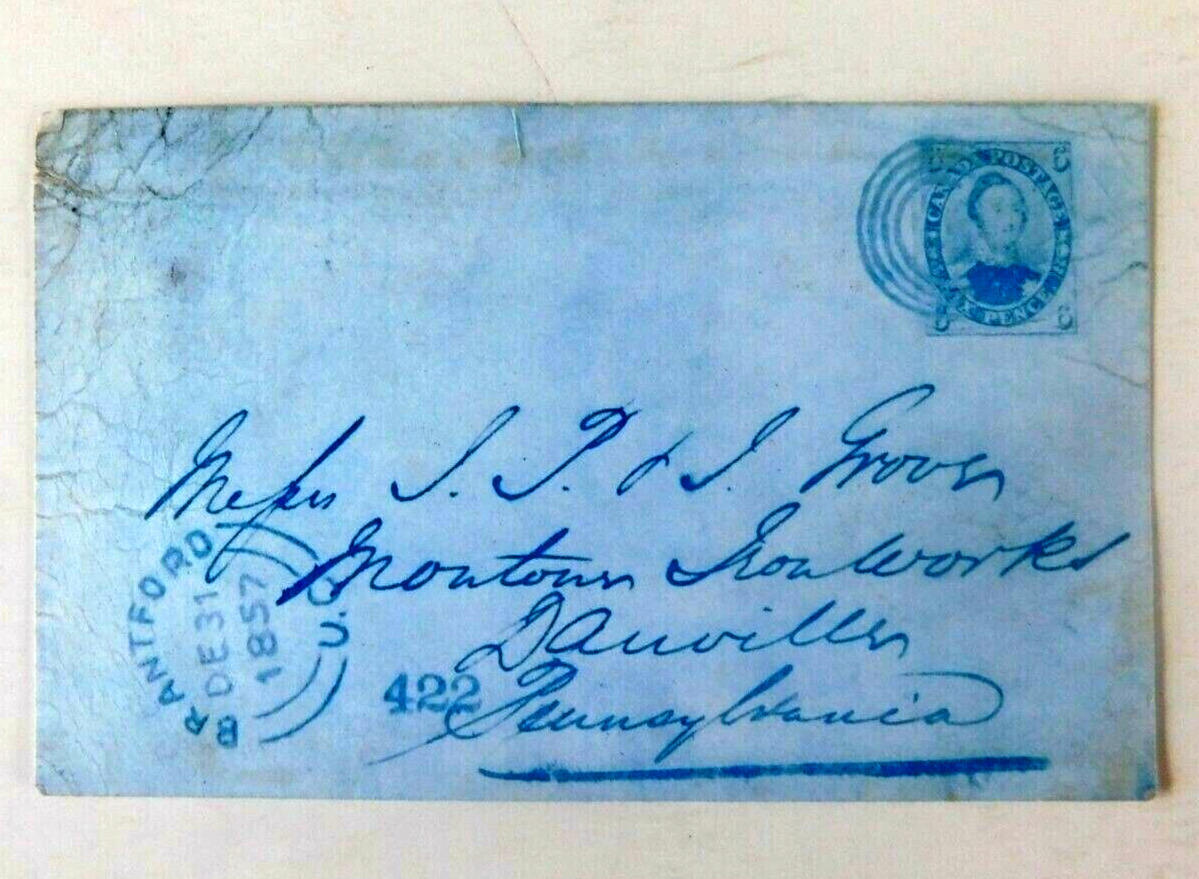 CANADA POSTAGE
SIX PENCE
6
6
6
Messrs I. P. & I. Grove
Montour Iron Works
Danville
Pennsylvania
BRANTFORD
DE 31
1857
U.C
422